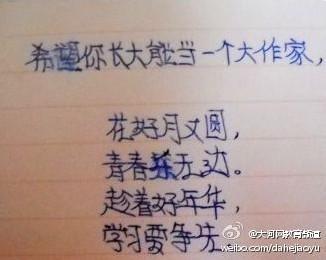 希望你长大能当一个大作家,
花好月又圆,
青春乐无边。
趁着好年华,
学习要争先
@大河网教育频道
weibo.com/dahejiaoyu